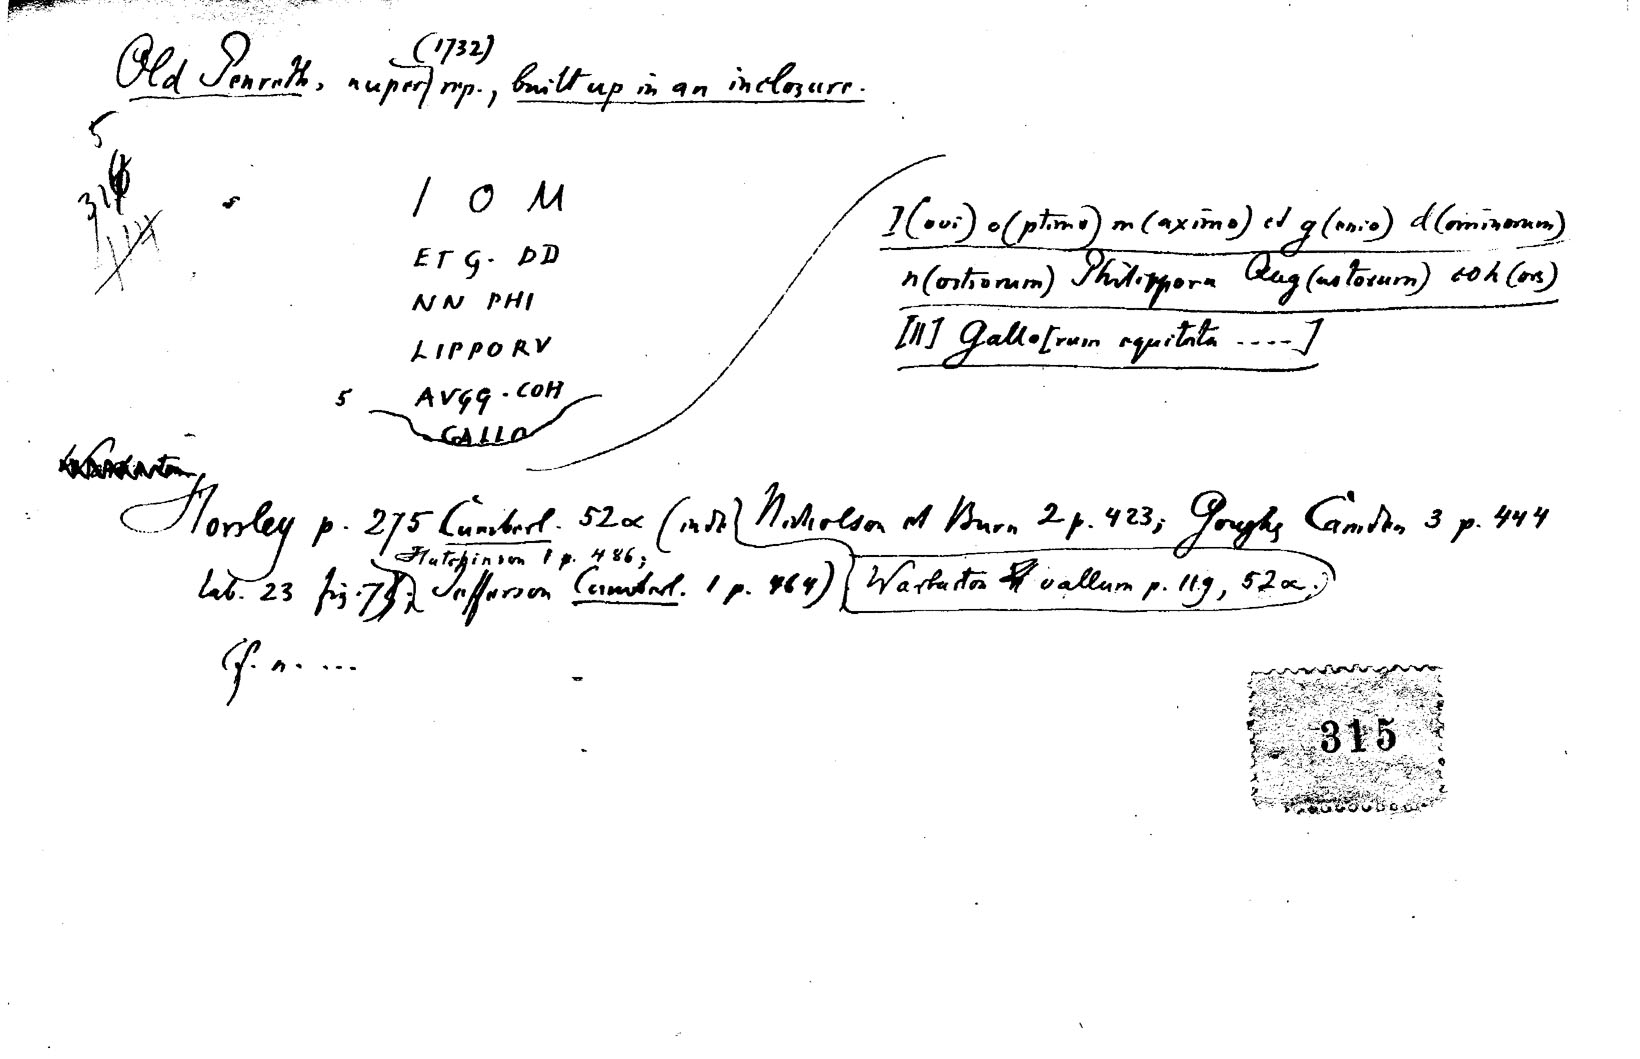 (1732)
Old Penrith, nuper rep., built up in an inclosure.
5
I O M
ET G. DD
NN PHI
LIPPORV
5 AVGG. COH
GALLO
I(ovi) o(ptimo) m(aximo) et g(enio) d(ominorum)
n(ostrorum) Philipporu Aug(ustorum) coh(ors)
[II] Gallo[rum equitata ....]
Horsley p. 275 Cumberl. 52α (inde Nicholson et Burn 2 p. 423; Goughs Camden 3 p. 444
Hutchinson 1 p. 486;
tab. 23 fig. Jefferson Cumberl. 1 p. 464) Warburton vallum p. 119, 52α.
Cf. n. ...
315